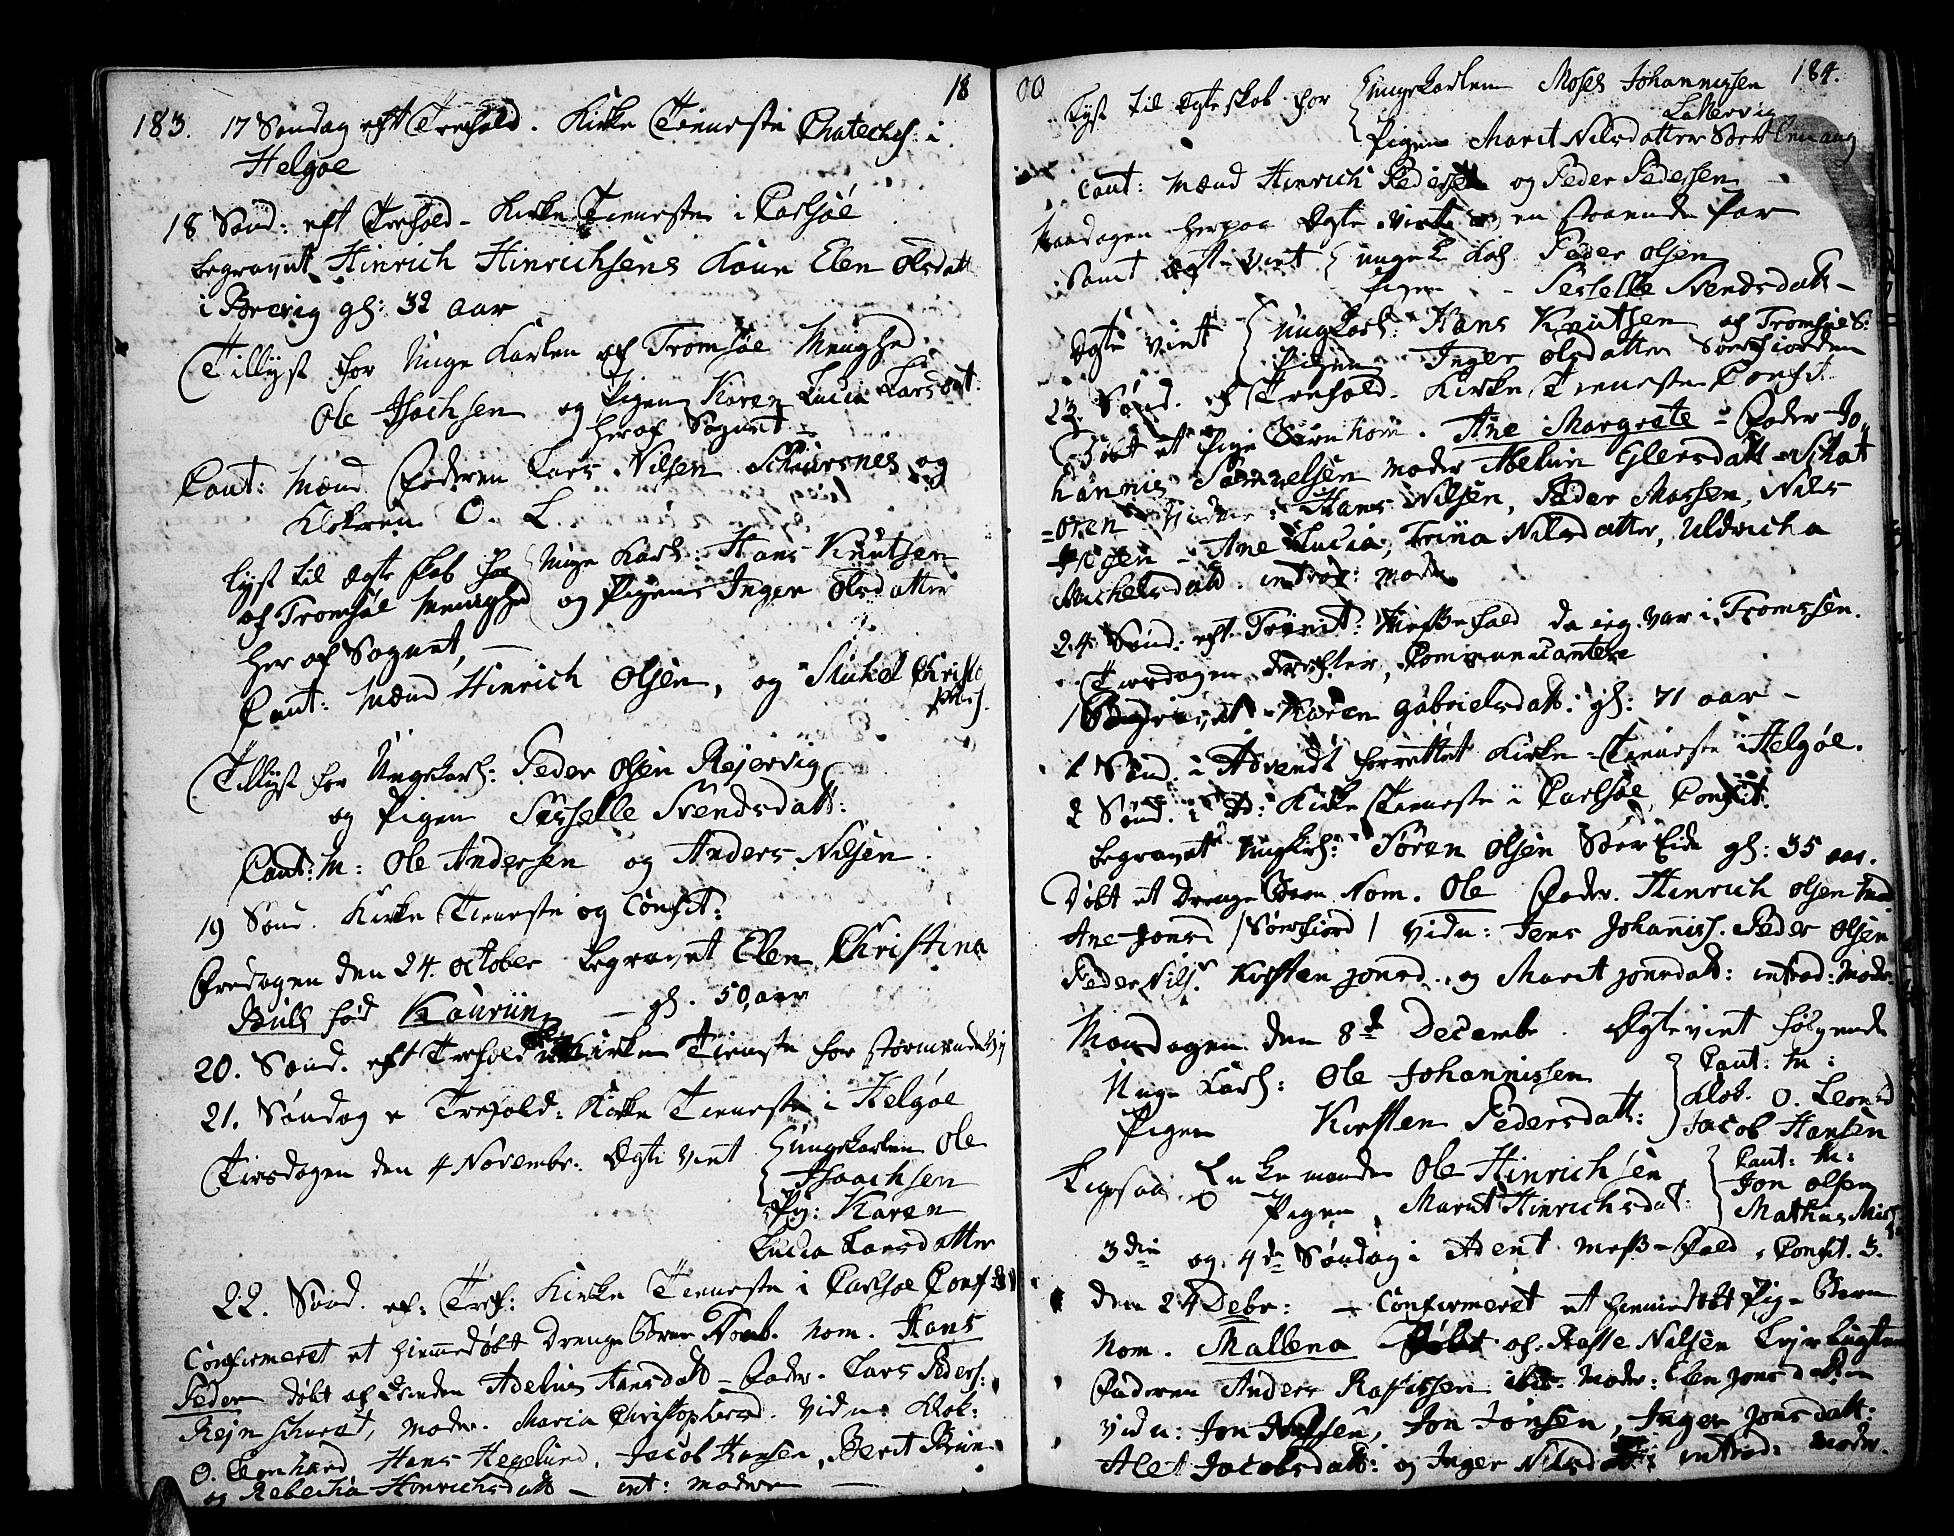 183. 18
17 Søndag eft Trefold. Kirke Tieneste Chatechs: i
Helgøe
18 Sønd: eft Trefold - Kirke Tieneste i Carlsøe
begravet Hinrich Hinrichsens Kone Elen Olsdatt
i Brevig gl: 32 aar
Tillyst for Unge Karlen af Tromsøe Menighed
Ole Isachsen og Pigen Karen Lucia Larsdat:
her af Sognet -
Caut: Mænd Faderen Lars Nilsen og
Klokeren O. L.
lyst til Egteskab for Unge Karl: Hans Knutsen
af Tromsøe Menighed og Pigen Inger Olsdatter
her af Sognet, -
Caut: Mænd Hinrich Olsen, og Mikel Christo
Tillyst for Ungekarl: Peder Olsen Rejervig
og Pigen Sesselle Svendsdatt:
Caut: M: Ole Andersen og Anders Nilsen.
19 Sønd. Kirke Tieneste og Confit:
Fredagen den 24. October begravet Elen Christina
Bull fød Kauriin - gl. 50, aar
20. Sønd. eft Trefold Kirke Tieneste for
21. Søndag e Trefold: Kirke Tieneste i Helgøe
Tirsdagen den 4 Novembr: Egte viet Ungekarlen Ole
Isaachsen
Pig: Karen
Lucia Larsdatter
22. Sønd. ef: Tref: Kirke Tieneste i Carlsøe Conf
Confirmeret et hiemmedøbt Drenge Barn nom. Hans
Peder døbt af Qvinden Adelus Hansdatt - Fader. Lars Peders:
Rejnschuret, Moder. Maria Christophersd. Vidn: Klok:
O. Leonhard Hans Hegelund, Jacob Hansen, Berit Brun
og Rebecha Hinrichsdatt - int: Moder -
00 184.
Lyst til Egteskab for Ungekarlen Moses Johannissen
Lattervig
Pigen Marit Nilsdatter
Caut: Mænd Hinrich Pedersen og Peder Pedersen -
Mandagen herpaa Egte viet en Par
samt Egte-viet unge Kal Peder Olsen
Pigen - Sesselle Svendsdatt -
Egte viet Ungkarl: Hans Knutsen af Tromsøe S:
Pigen - Inger Olsdatter Sørefiorden
23. Sønd. ef Trefold - Kirke Tieneste Confit
Døbt et Pige Barn nom. Ane Margrete - Fader Jo-
hannis Samuelsen Moder Abelun Glersdatt - Skat
=øren Vidne: Hans Nilsen, Peder Massen, Nils
- Ane Lucia, Trina Nilsdatter, Uldricha
Michelsdatt. introd: Moder
24 Sønd: eft Trinit: Messefald da ieg var i Tromssen.
Tirsdagen derefter, Communicantere
Begravet Karen Gabrielsdatt: gl: 71 aar -
1 Sønd. i Advendt forrettet Kirke-Tieneste i Helgøe.
2 Sønd. i A: Kirke Tieneste i Carlsøe, Confit.
begravet Ungkrl: Søren Olsen Sør Eide gl: 35 aar.
Døbt et Drenge Barn Nom. Ole Fader. Hinrich Olsen Mod
Ane Jonsd /Sørfiord/ Vidn: Jens Johaniss. Peder Olsen
Peder Nils. Kirsten Jonsd. og Marit Jonsdatt: introd: Moder.
Mandagen den 8de Decembr. Egteviet følgende
Unge Karl: Ole Johannissen Caut: M:
Klok. O. Leonhd
Pigen Kirsten Pedersdatt: Jacob Hansen
Ligesaa Enkemanden Ole Hinrichsen Caut: M:
Jon Olsen
Pigen Marit Hinrichsdat: Mathias
3die og 4de Søndag i Advent Mess-Fald, Confit. 3.
den 24 Debr: - Confirmeret et hiemmedøbt Pige Barn
Nom. Mallena Døbt af Rasse Nilsen
Faderen Anders Rassissen Moder: Elen Jonsdatter
Vidn: Jon Nilsen, Jon Jonsen, Inger Jonsdatt:
Alet Jacobsdatt: og Inger Nilsdatt introd: Moder.